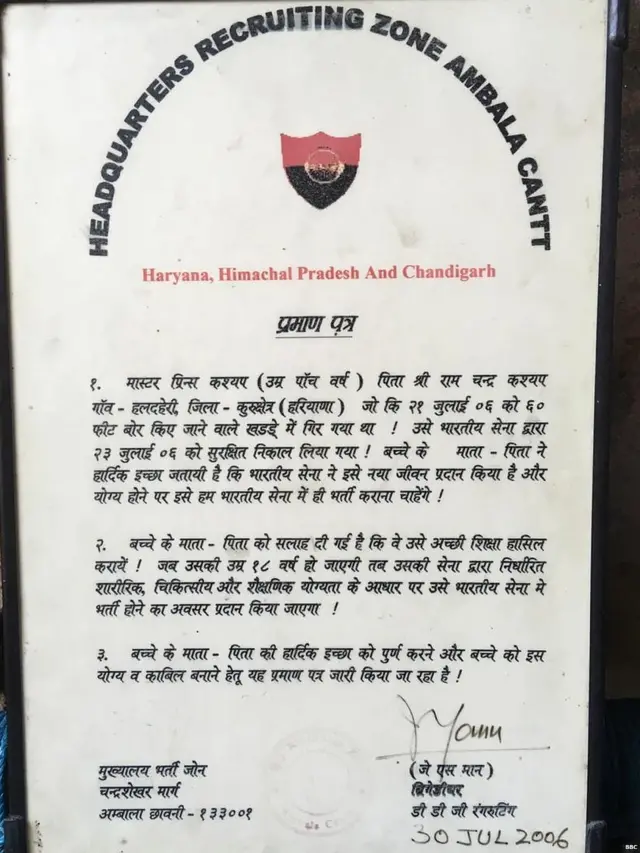 HEADQUARTERS RECRUITING ZONE AMBALA CANTT
Haryana, Himachal Pradesh And Chandigarh
प्रमाण पत्र
१. मास्टर प्रिन्स कश्यप (उम्र पाँच वर्ष) पिता श्री राम चन्द्र कश्यप
गाँव - हलदहेरी, जिला - कुरुक्षेत्र (हरियाणा) जो कि २१ जुलाई ०६ को ६०
फीट बोर किए जाने वाले खडडे में गिर गया था ! उसे भारतीय सेना द्वारा
२३ जुलाई ०६ को सुरक्षित निकाल लिया गया ! बच्चे के माता - पिता ने
हार्दिक इच्छा जतायी है कि भारतीय सेना ने इसे नया जीवन प्रदान किया है और
योग्य होने पर इसे हम भारतीय सेना में ही भर्ती कराना चाहेंगे !
२. बच्चे के माता - पिता को सलाह दी गई है कि वे उसे अच्छी शिक्षा हासिल
करायें ! जब उसकी उम्र १८ वर्ष हो जाएगी तब उसकी सेना द्वारा निर्धारित
शारीरिक, चिकित्सीय और शैक्षणिक योग्यता के आधार पर उसे भारतीय सेना मे
भर्ती होने का अवसर प्रदान किया जाएगा !
३. बच्चे के माता - पिता की हार्दिक इच्छा को पुर्ण करने और बच्चे को इस
योग्य व काबिल बनाने हेतू यह प्रमाण पत्र जारी किया जा रहा है !
मुख्यालय भर्ती जोन
चन्द्रशेखर मार्ग
अम्बाला छावनी - १३३००१
(जे एस मान)
ब्रिगेडीयर
डी डी जी रंगरुटिंग
30 JUL 2006
BBC